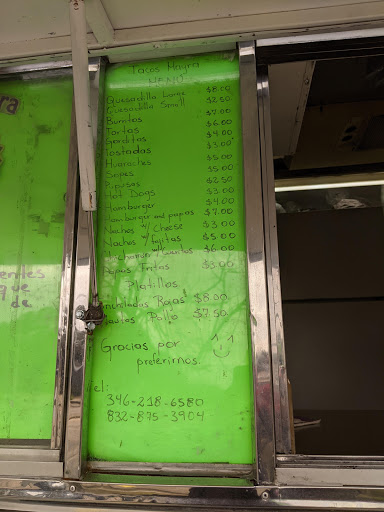 Tacos Mayra
MENU
Quesadilla Large $8.00
Quesadilla Small $2.50
Burritos $7.00
Tortas $6.00
Gorditas $4.00
Tostadas $3.00
Huaraches $5.00
Sopes $5.00
Pupusas $2.50
Hot Dogs $3.00
Hamburger $4.00
Hamburger and papas $7.00
Nachos w/ Cheese $3.00
Nachos w/ fajitas $5.00
$6.00
Papas Fritas $3.00
Platillos
Enchiladas Rojas $8.00
Flautas Pollo $7.50
Gracias por
preferirnos.
Tel:
346-218-6580
832-875-3904
ra
entes
que
de